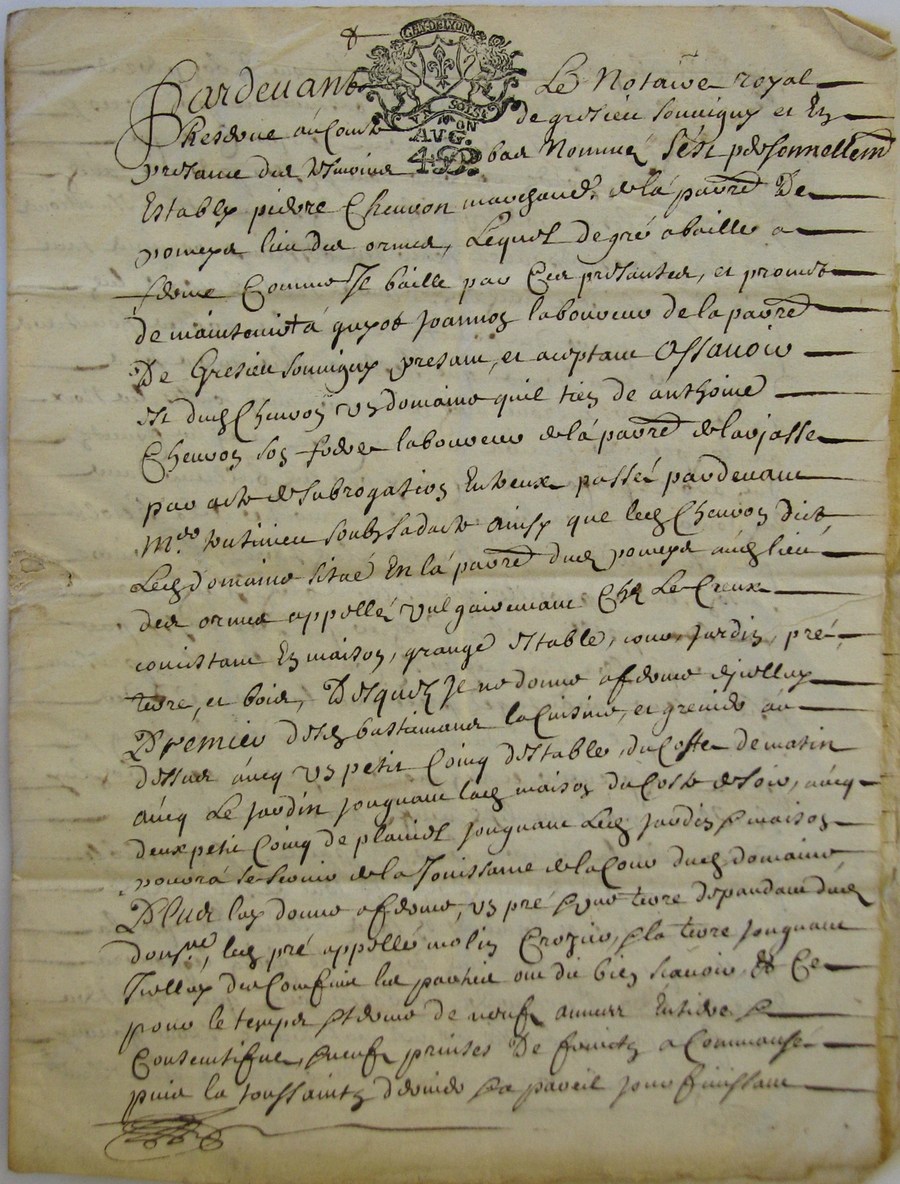 GN. DE LYON
Pardevant Le Notaire royal
Reserve au Conte de gresieu souvigny et En
AUG.
presance des tesmoins bas Nommés s'est personnellemt
Estably pierre Chevron marchand de la parre De
pomeys lieu des ormes, Lequel de gré a baille a
ferme Comme Il baille par Ces presantes, et promet
de maintenir a guyot Joannon laboureur de la parre
De Gresieu souvigny presant, et aceptant Assavoir
est dud Chevron un domaine quil tien de anthoine
Chevron son frere laboureur de la parre de lavjasse
par acte de subrogation Entreux passé pardevant
Me soubs sa datte Ainsy que led Chevron dict
Led domaine situé En la parre dud pomeys aud lieu
des ormes appellé vulgairemant Chez Le Creux
consistant En maison, grange estable, cour, Jardin, pré
terre, et bois, Desquelz Je ne donne a ferme
Premier desd bastimans la Cuisine, et grenier au
dessus avecq un petit Coing destable, du Costé de matin
avecq Le Jardin Jougnant lad maison du Costé de soir, avecq
deux petit Coing de Jougnant Led Jardin & maison
pourra se servir de la Jouissance de la Cour dud domaine
Plus luy donne a ferme, un pré & une terre despandant dud
domne, led pré appellé molin Crozier, & la terre Jougnant
Iceluy des Confins les parties ont dit bien scavoir, & Ce
pour le temps & terme de neuf annees Entieres &
Consecutifves, & neuf prinses De fruictz a Commansé
puis la toussaintz derniere & a pareil jour finissant